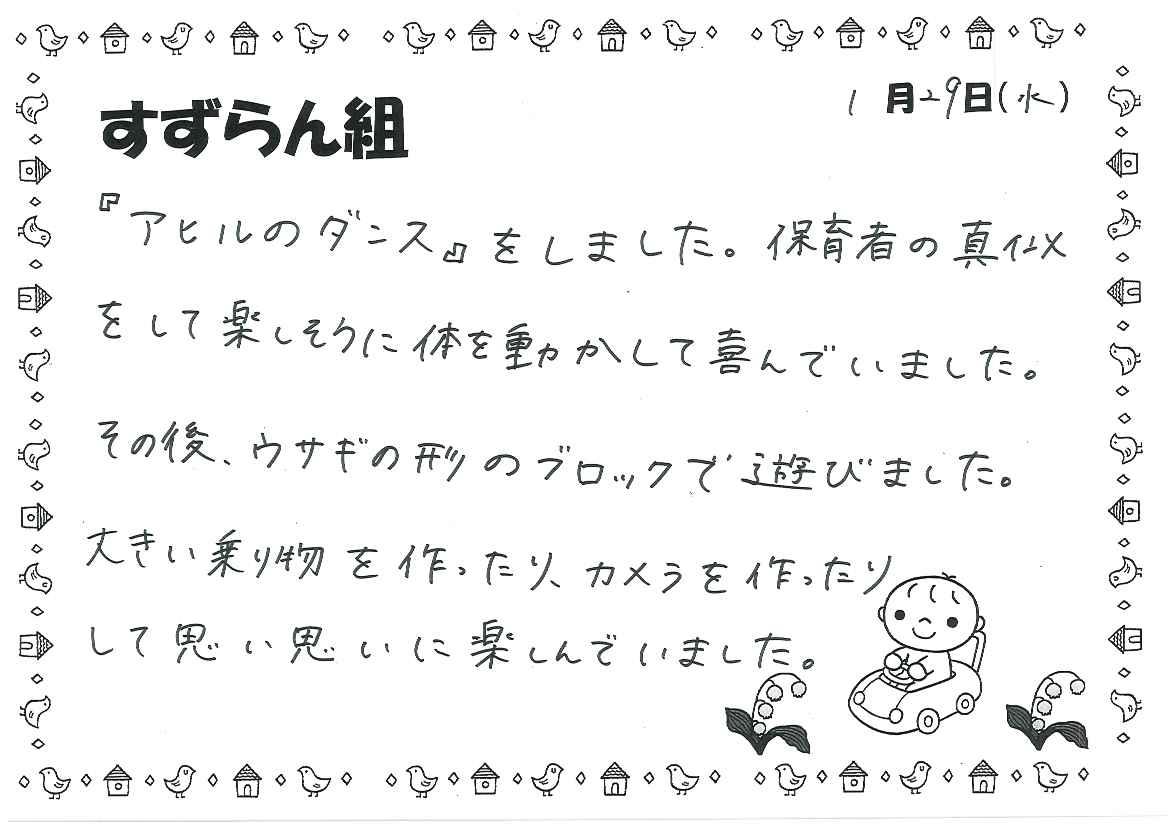 1月29日(水)
すずらん組
『アヒルのダンス』をしました。保育者の真似
をして楽しそうに体を動かして喜んでいました。
その後、ウサギの形のブロックで遊びました。
大きい乗り物を作ったり、カメラを作ったり
して思い思いに楽しんでいました。